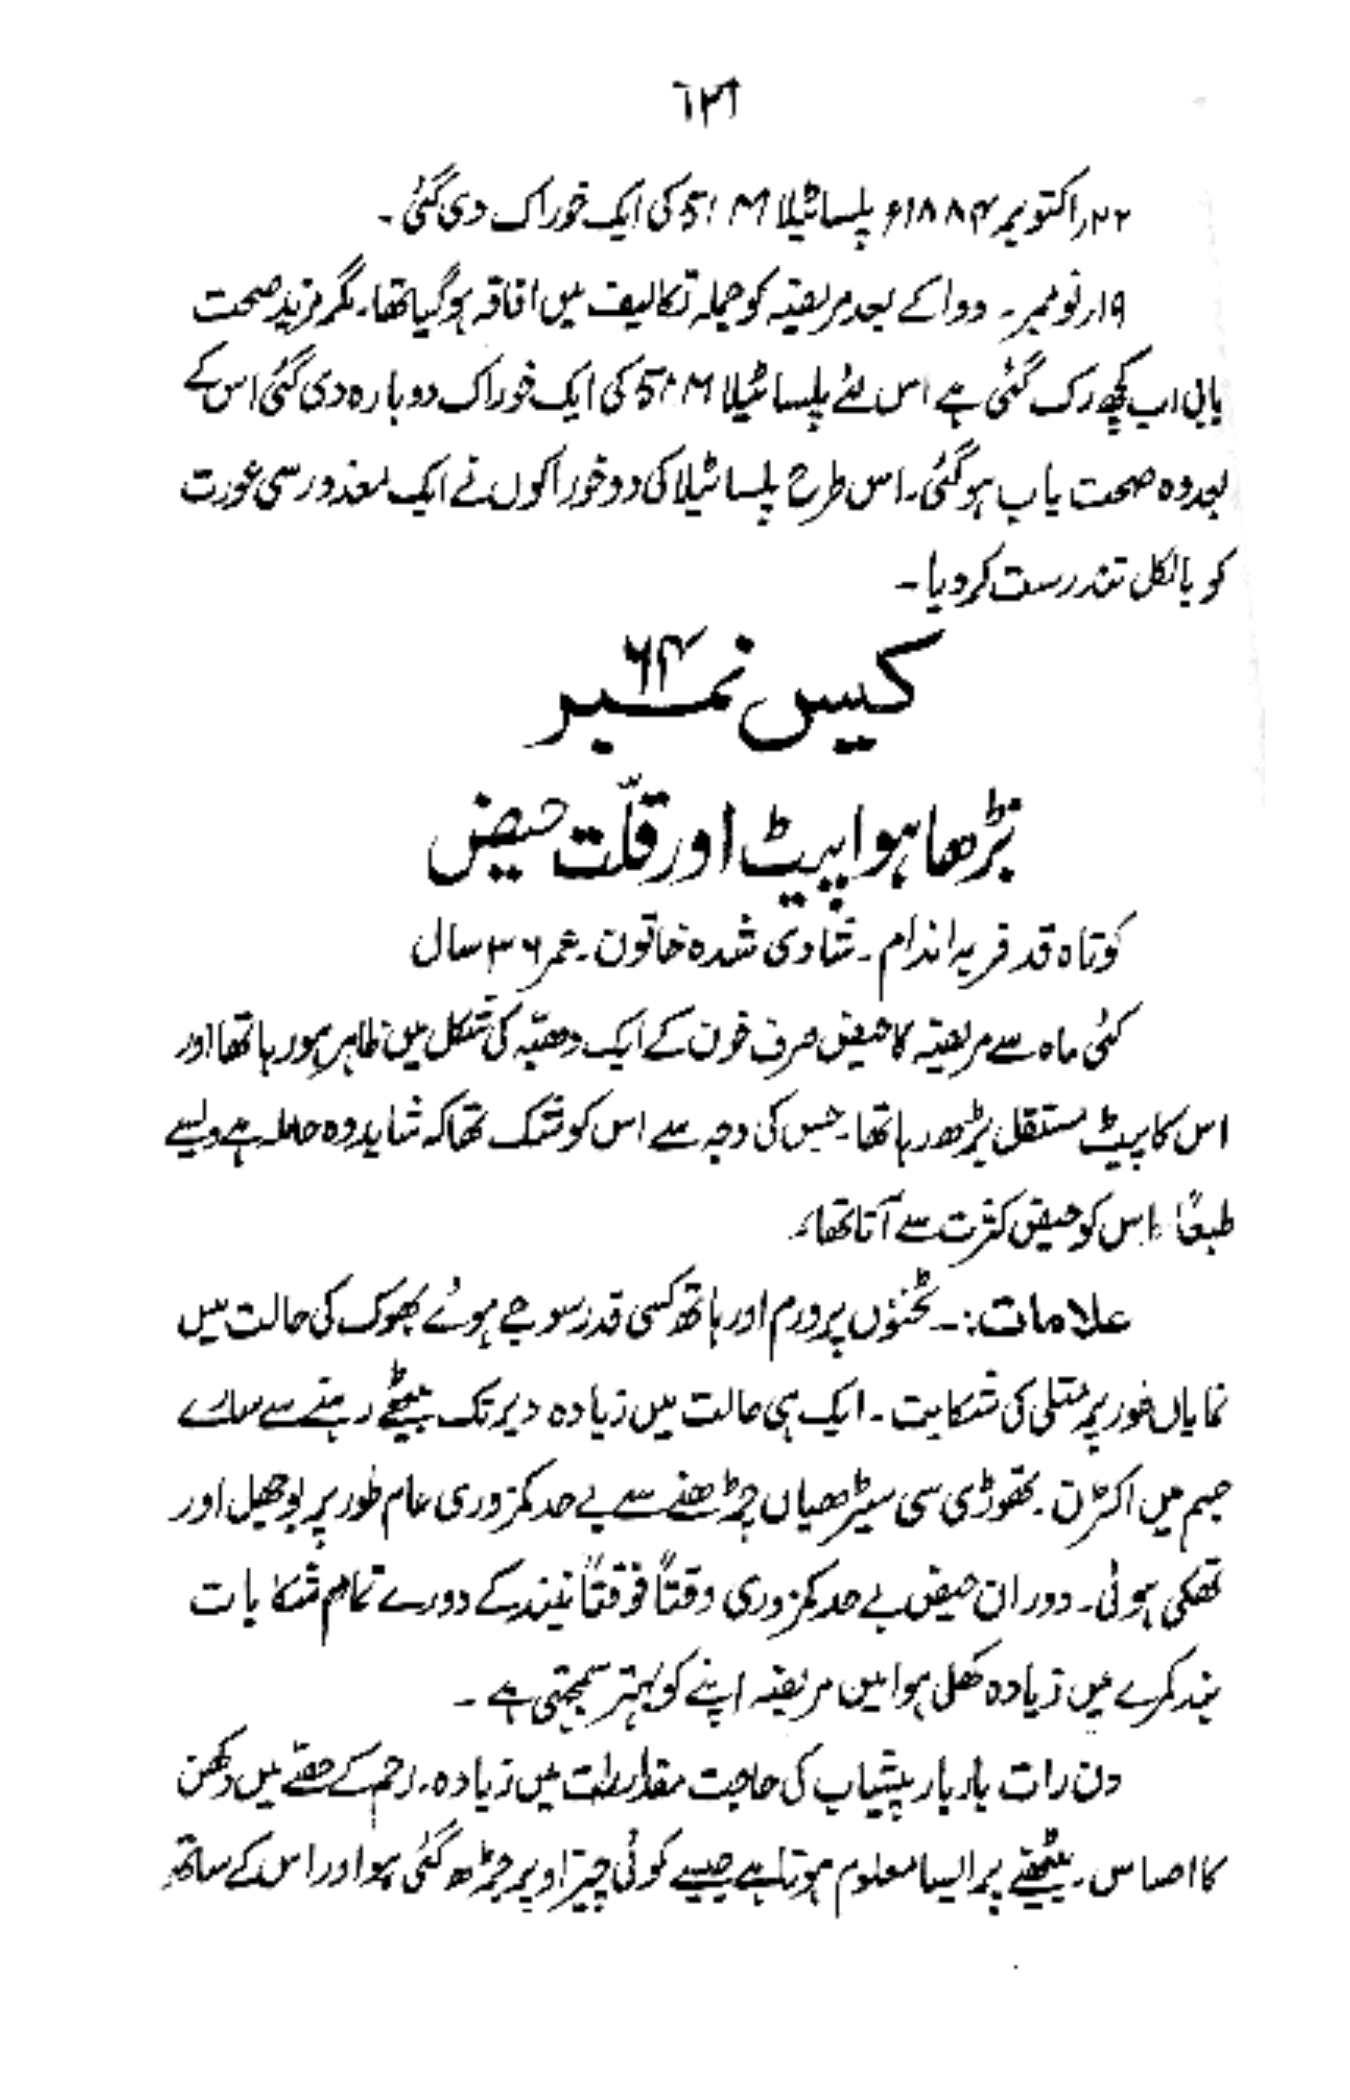 ۶۲۱
۲۲ر اکتوبر ۱۸۸۴ء پلساٹیلا 51 M کی ایک خوراک دی گئی۔
۱۹ر نومبر۔ دوا کے بعد مریضہ کو جملہ تکالیف میں افاقہ ہو گیا تھا۔ مگر مزید صحت
یابی اب کچھ رک گئی ہے اس لئے پلساٹیلا 51 M کی ایک خوراک دوبارہ دی گئی اس کے
بعد وہ صحت یاب ہو گئی۔ اس طرح پلساٹیلا کی دو خوراکوں نے ایک معذور سی عورت
کو بالکل تندرست کر دیا۔
کیس نمبر ۶۴
بڑھا ہوا پیٹ اور قلّت حیض
کوتاہ قد فربہ اندام۔ شادی شدہ خاتون۔ عمر ۳۶ سال
کئی ماہ سے مریضہ کا حیض صرف خون کے ایک دھبّہ کی شکل میں ظاہر ہو رہا تھا اور
اس کا پیٹ مستقل بڑھ رہا تھا۔ جس کی وجہ سے اس کو شک تھا کہ شاید وہ حاملہ ہے ویسے
طبعاً اس کو حیض کثرت سے آتا تھا۔
علامات:۔ ٹخنوں پر ورم اور ہاتھ کسی قدر سوجے ہوئے بھوک کی حالت میں
نمایاں طور پر متلی کی شکایت۔ ایک ہی حالت میں زیادہ دیر تک بیٹھے رہنے سے سارے
جسم میں اکڑن۔ تھوڑی سی سیڑھیاں چڑھنے سے بے حد کمزوری عام طور پر بوجھل اور
تھکی ہوئی۔ دوران حیض بے حد کمزوری وقتاً فوقتاً نیند کے دورے تمام شکایات
بند کمرے میں زیادہ کھلی ہوا میں مریضہ اپنے کو بہتر سمجھتی ہے۔
دن رات بار بار پیشاب کی حاجت مقدار رات میں زیادہ۔ رحم کے حصّے میں دکھن
کا احساس۔ بیٹھنے پر ایسا معلوم ہوتا ہے جیسے کوئی چیز اوپر چڑھ گئی ہو اور اس کے ساتھ